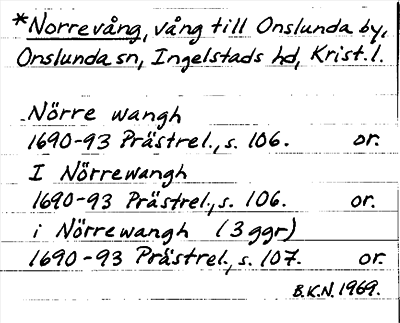 *Norrevång, vång till Onslunda by,
Onslunda sn, Ingelstads hd, Krist.l.
Nörre wangh
1690-93 Prästrel., s. 106. or.
I Nörrewangh
1690-93 Prästrel., s. 106. or.
i Nörrewangh (3 ggr)
1690-93 Prästrel., s. 107. or.
B.K.N. 1969.